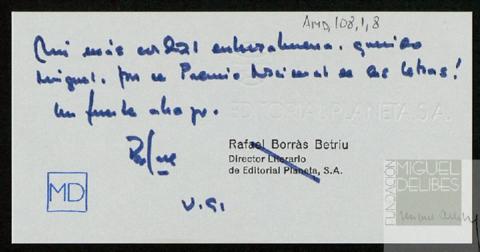 AMD, 108, 1, 8
¡Mi más cordial enhorabuena, querido
Miguel, por el Premio Nacional de las Letras!
Un fuerte abrazo.
EDITORIAL PLANETA, S.A.
Rafael
Rafael Borràs Betriu
Director Literario
de Editorial Planeta, S.A.
MD
FUNDACIÓN
MIGUEL
DELIBES